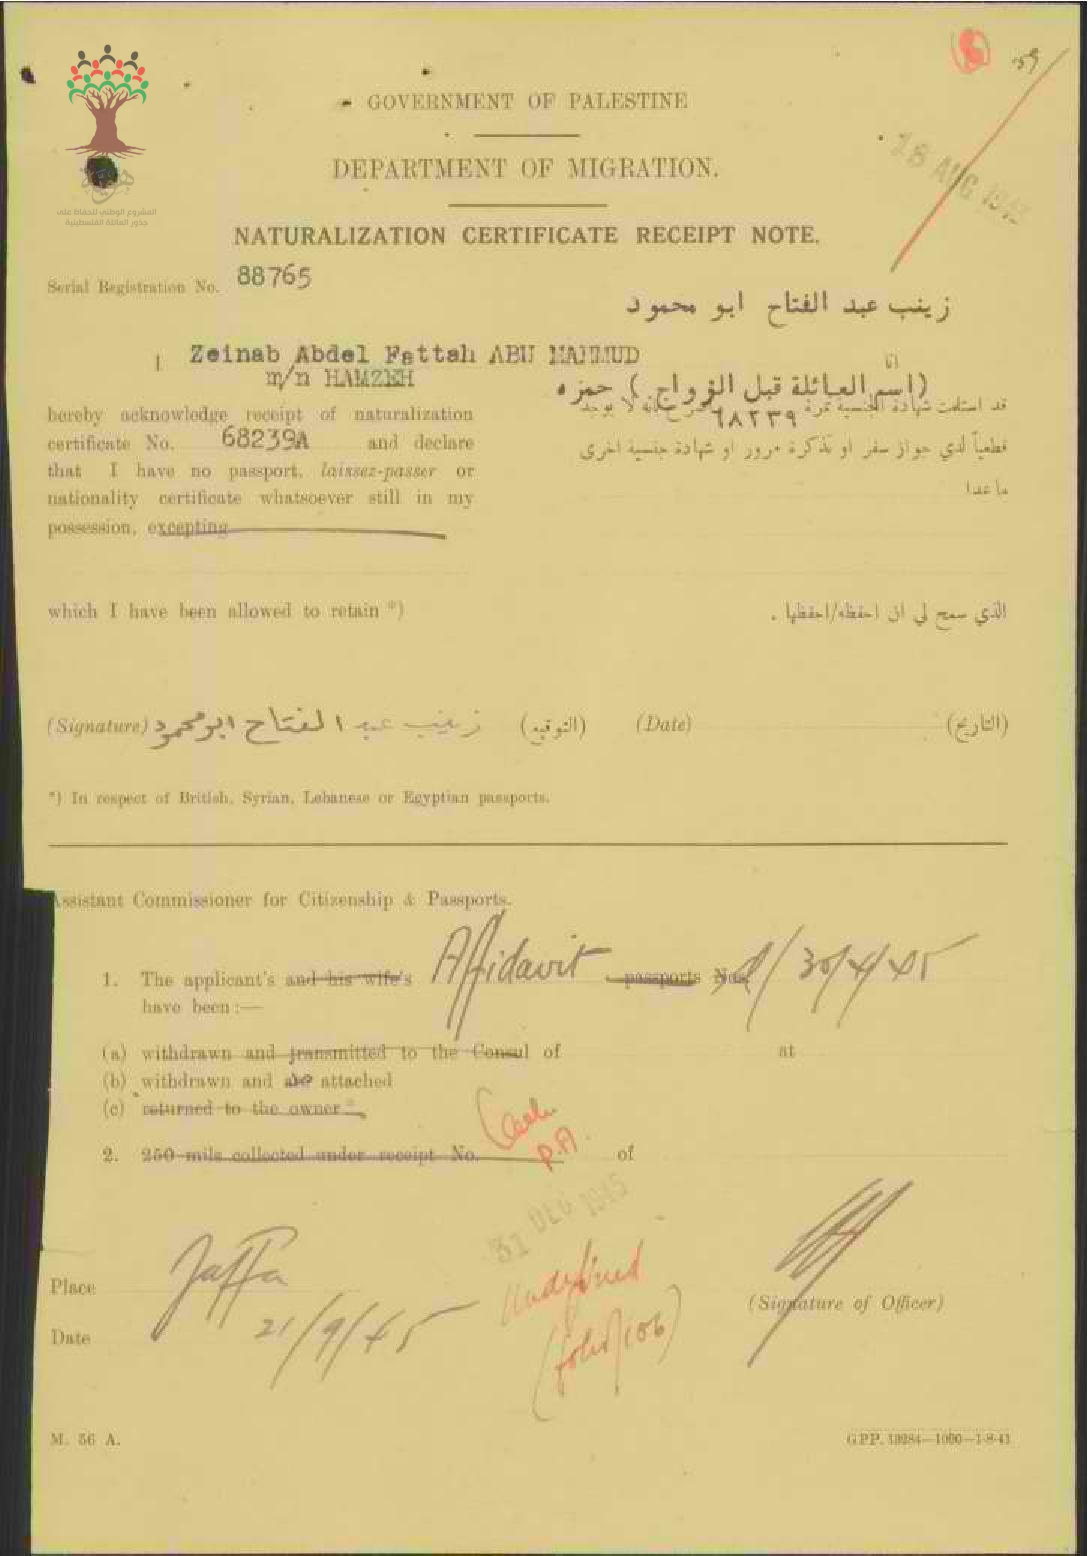 المشروع الوطني للحفاظ على
جذور العائلة الفلسطينية
59
GOVERNMENT OF PALESTINE
DEPARTMENT OF MIGRATION.
28 AUG 194
NATURALIZATION CERTIFICATE RECEIPT NOTE.
Serial Registration No. 88765
زينب عبد الفتاح ابو محمود
I Zeinab Abdel Fattah ABU MAHMUD
m/n HAMZEH
انا
(اسم العائلة قبل الزواج) حمزه
hereby acknowledge receipt of naturalization
certificate No. 68239A and declare
that I have no passport, laissez-passer or
nationality certificate whatsoever still in my
possession, excepting
قد استلمت شهادة الجنسية نمرة ٦٨٢٣٩ بانه لا يوجد
قطعياً لدي جواز سفر او تذكرة مرور او شهادة جنسية اخرى
ما عدا
which I have been allowed to retain *)
الذي سمح لي ان احفظه/احفظها .
(Signature) زينب عبد الفتاح ابو محمود (التوقيع) (Date) (التاريخ)
*) In respect of British, Syrian, Lebanese or Egyptian passports.
Assistant Commissioner for Citizenship & Passports.
1. The applicant's and his wife's Affidavit passports Nos. 30/4/45
have been :—
(a) withdrawn and transmitted to the Consul of at
(b) withdrawn and attached
(c) returned to the owner *
2. 250 mils collected under receipt No. of
P.A.
31 DEC 1945
Undefined
(folio 106)
Place Jaffa
Date 21/9/45
(Signature of Officer)
M. 56 A.
GPP. 10284—1000—1-8-41